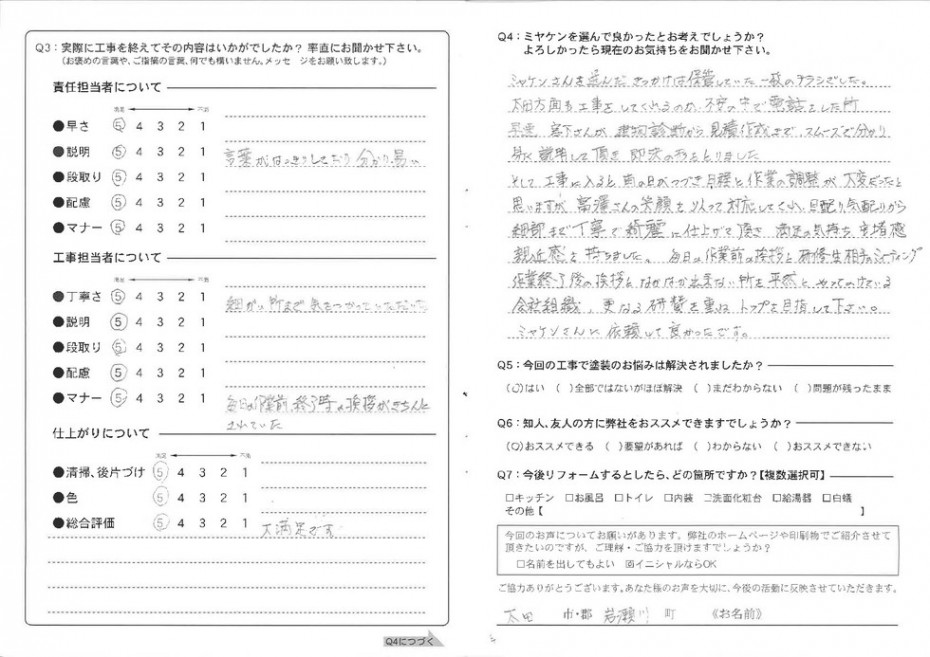 Q3：実際に工事を終えてその内容はいかがでしたか？ 率直にお聞かせ下さい。
（お褒めの言葉や、ご指摘の言葉、何でも構いません。メッセージをお願い致します。）
責任担当者について
満足 不満
●早さ 5 4 3 2 1
●説明 5 4 3 2 1 言葉がはっきりしており 分かり易い
●段取り 5 4 3 2 1
●配慮 5 4 3 2 1
●マナー 5 4 3 2 1
工事担当者について
満足 不満
●丁寧さ 5 4 3 2 1 細かい所まで気をつかっていただいた
●説明 5 4 3 2 1
●段取り 5 4 3 2 1
●配慮 5 4 3 2 1
●マナー 5 4 3 2 1 毎日の作業前、終了時の挨拶がきちんと
されていた
仕上がりについて
満足 不満
●清掃、後片づけ 5 4 3 2 1
●色 5 4 3 2 1
●総合評価 5 4 3 2 1 大満足です
Q4につづく
Q4：ミヤケンを選んで良かったとお考えでしょうか？
よろしかったら現在のお気持ちをお聞かせ下さい。
ミヤケンさんを選んだきっかけは保管していた一枚のチラシでした。
太田方面も工事をしてくれるのか、不安の中で電話をした所
早速 宮下さんが 建物診断から見積作成まで、スムーズで分かり
易く説明して頂き 即決のありました
そして工事に入ると雨の日がつづき日程と作業の調整が大変だったと
思いますが 高澤さんの笑顔をもって対応してくれ、目配り気配りから
細部まで丁寧で綺麗に仕上がって頂き 満足の気持ち
親近感を持ちました。毎日の作業前の挨拶と研修生相手のミーティング
作業終了後の挨拶となかなか出来ない所を平然とやってのけている
会社組織、更なる研賛を重ね トップを目指して下さい。
ミヤケンさんに依頼して良かったです。
Q5：今回の工事で塗装のお悩みは解決されましたか？
（○）はい （ ）全部ではないがほぼ解決 （ ）まだわからない （ ）問題が残ったまま
Q6：知人、友人の方に弊社をおススメできますでしょうか？
（○）おススメできる （ ）要望があれば （ ）わからない （ ）おススメできない
Q7：今後リフォームするとしたら、どの箇所ですか？【複数選択可】
□キッチン □お風呂 □トイレ □内装 □洗面化粧台 □給湯器 □白蟻
その他【 】
今回のお声についてお願いがあります。弊社のホームページや印刷物でご紹介させて
頂きたいのですが、ご理解・ご協力を頂けますでしょうか？
□名前を出してもよい ☑イニシャルならOK
ご協力ありがとうございます。あなた様のお声を大切に、今後の活動に反映させていただきます。
太田 市・郡 岩瀬川 町 《お名前》